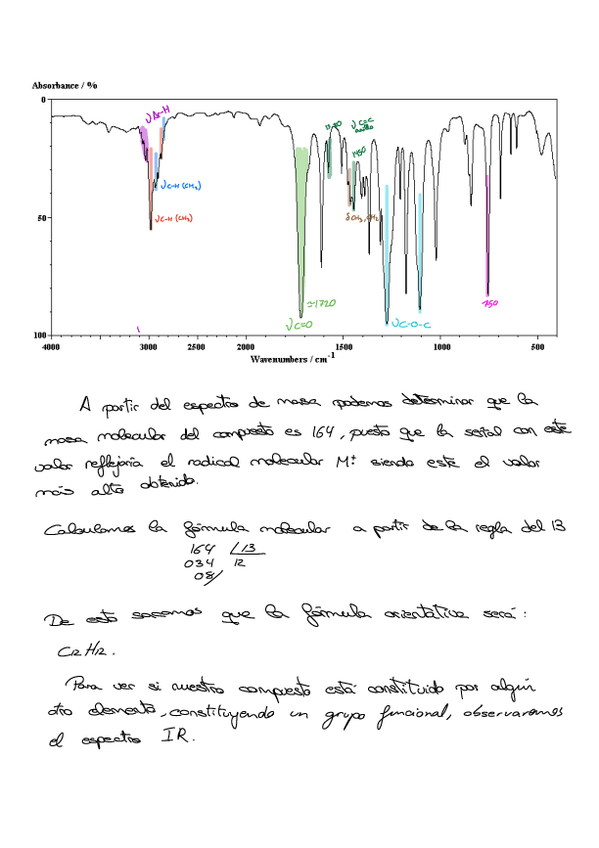 Absorbance / %
0
50
100
4000 3000 2000 1500 1000 500
Wavenumbers / cm-1
νAr-H
νC-H (CH2)
νC-H (CH3)
≃1720
νC=O
νC=C
1450
δCH3, CH2
νC-O-C
750
A partir del espectro de masa podemos determinar que la
masa molecular del compuesto es 164, puesto que la señal con este
valor reflejaría el radical molecular M+· siendo este el valor
más alto obtenido.
Calculamos la fórmula molecular a partir de la regla del 13
164 13
034 12
08
De esto sacamos que la fórmula orientativa será:
C12H12.
Para ver si nuestro compuesto está constituido por algún
otro elemento, constituyendo un grupo funcional, observaremos
el espectro IR.